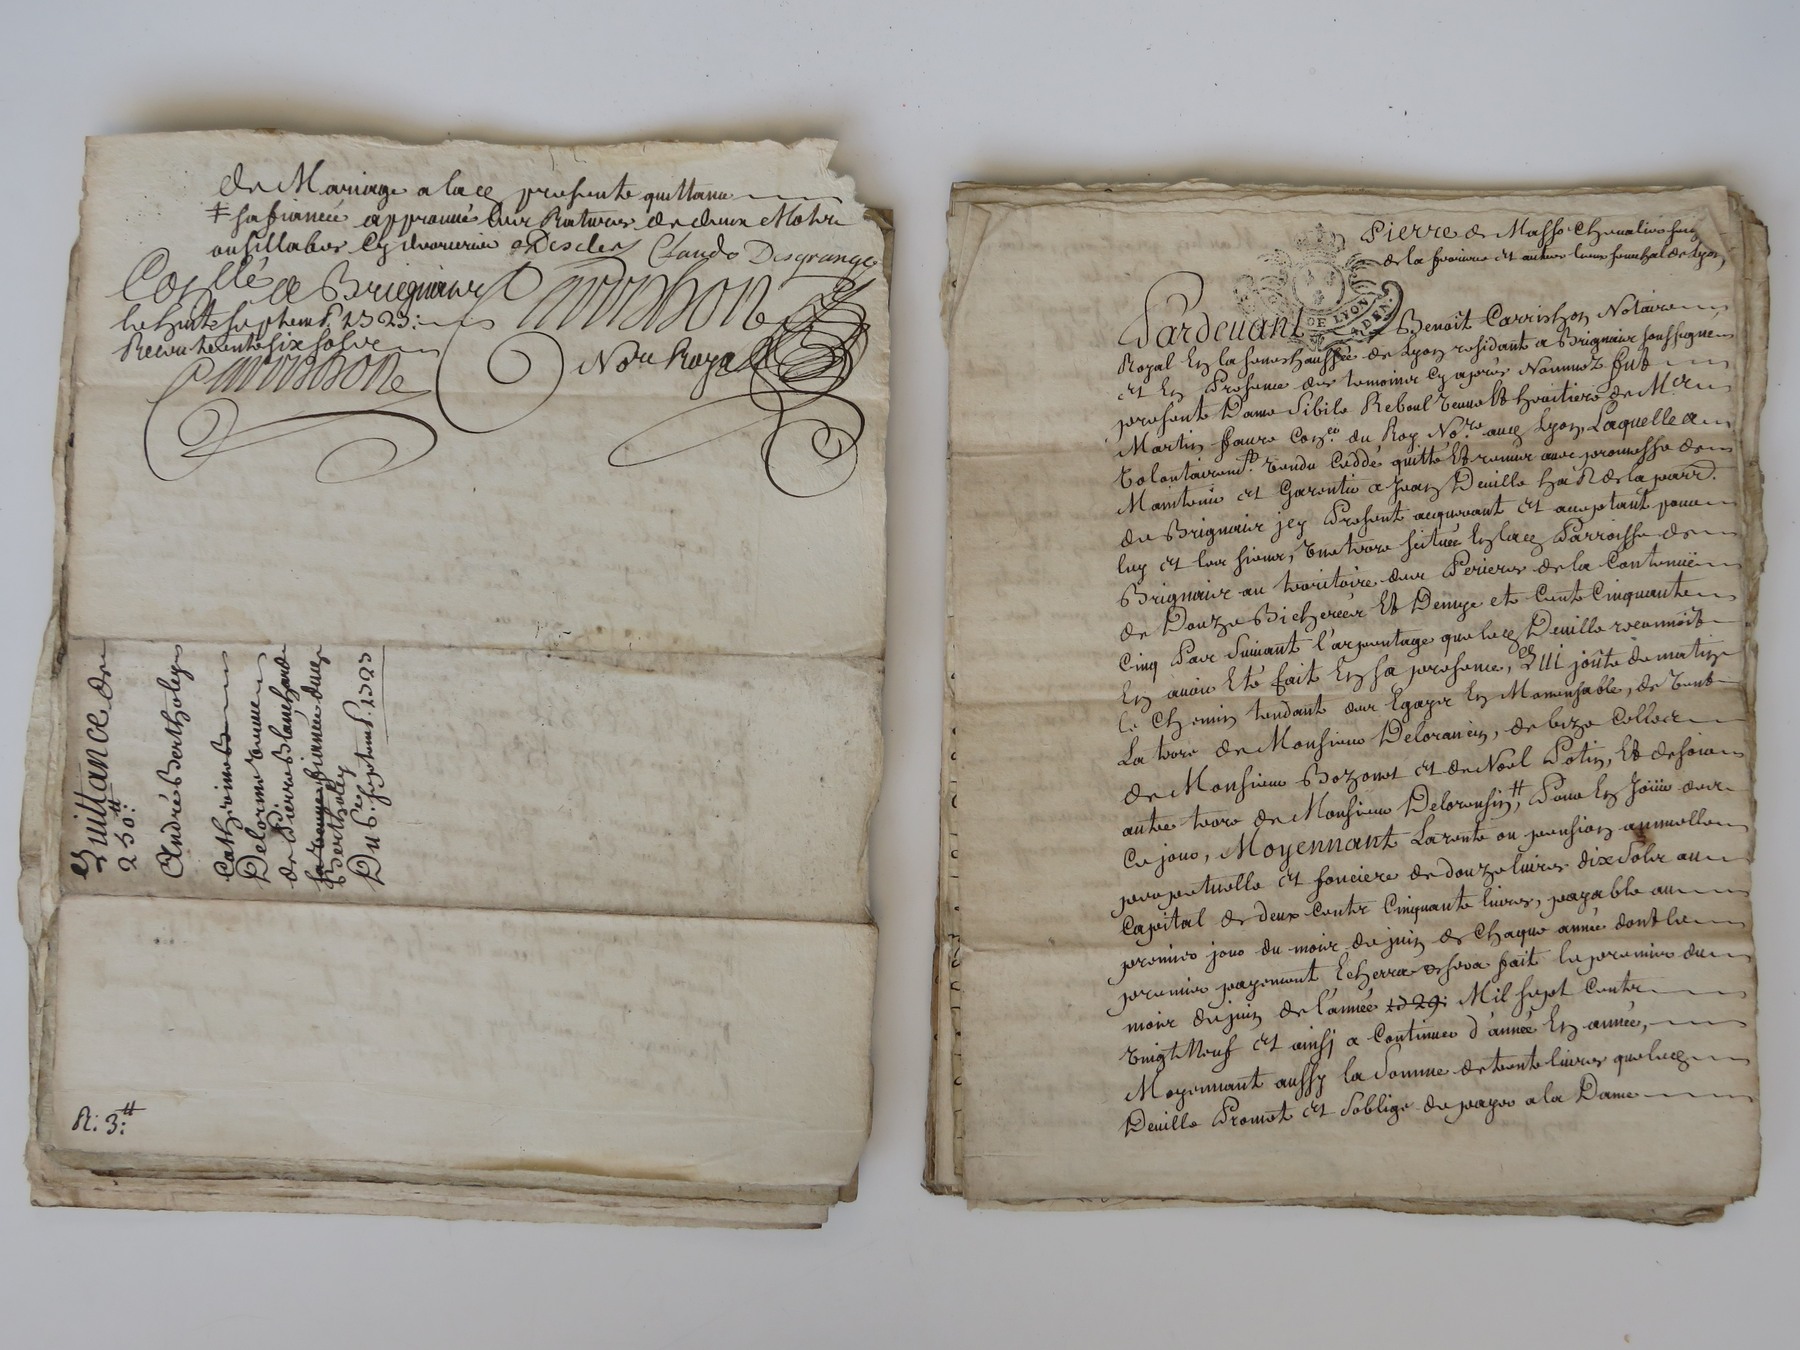 de Mariage a lad presente quittance
‡ sa fiancée approuvé les Ratures de deux Mots
ou sillabes cy derriere Desclers Claude Desgranges
Conllé a Brignais Carrishon
le huit septemb. 1723:
Receu trente six sols
Carrishon Nore Royal
Quittance de
250:tt
André Bertholey
Catherine
Delorme veuve
de Pierre Blanchard
sa veuve fiancée dud
Bertholey
Du 6e septemb. 1723
R: 3:tt
Pierre de Masso Chevalier seig
de la ferriere et autres lieux senechal de Lyon,
DE LYON
Pardevant Benoît Carrishon Notaire
Royal En la senechaussée de Lyon residant a Brignais soussigné
et En Presence des temoins cy après Nommez fut
presente Dame Sibile Reboul veuve Et heritiere de Mr
Martin Faure Coner du Roy Nore aud Lyon, Laquelle a
volontairemt. vendu Ceddé quitté Et remis avec promesse de
Maintenir et Garentir a Jean Deville hañt de la parr.
de Brignais jcy Present acquerant et acceptant pour
luy et les siens, une terre scituée En lad Parroisse de
Brignais au territoire des Perieres de la Contenüe
de Douze Bicherées Et Demye et Cente Cinquante
Cinq Pas Suivant l'arpentage que led Deville reconnoît
En avoir Eté fait En sa presence, Qui joûte de matin
le Chemin tendant des Egayes En Morensable, de vent
La terre de Monsieur Delorancin, de bize Celles
de Monsieur Bozonet et de Noël Potin, Et de soir
autre terre de Monsieur Deloronsin, Pour En Joüir des
Ce jour, Moyennant La rente ou pension annuelle
perpetuelle et fonciere de douze livres dix Sols au
Capital de deux Cents Cinquante livres, payable au
premier jour du mois de juin de Chaque année dont le
premier payement Echerra et sera fait le premier du
mois de juin de l'année 1729: Mil sept Cents
vingt Neuf et ainsi a Continuer d'année En année,
Moyennant aussy la Somme de trente livres que led
Deville Promet et S'oblige de payer a la Dame